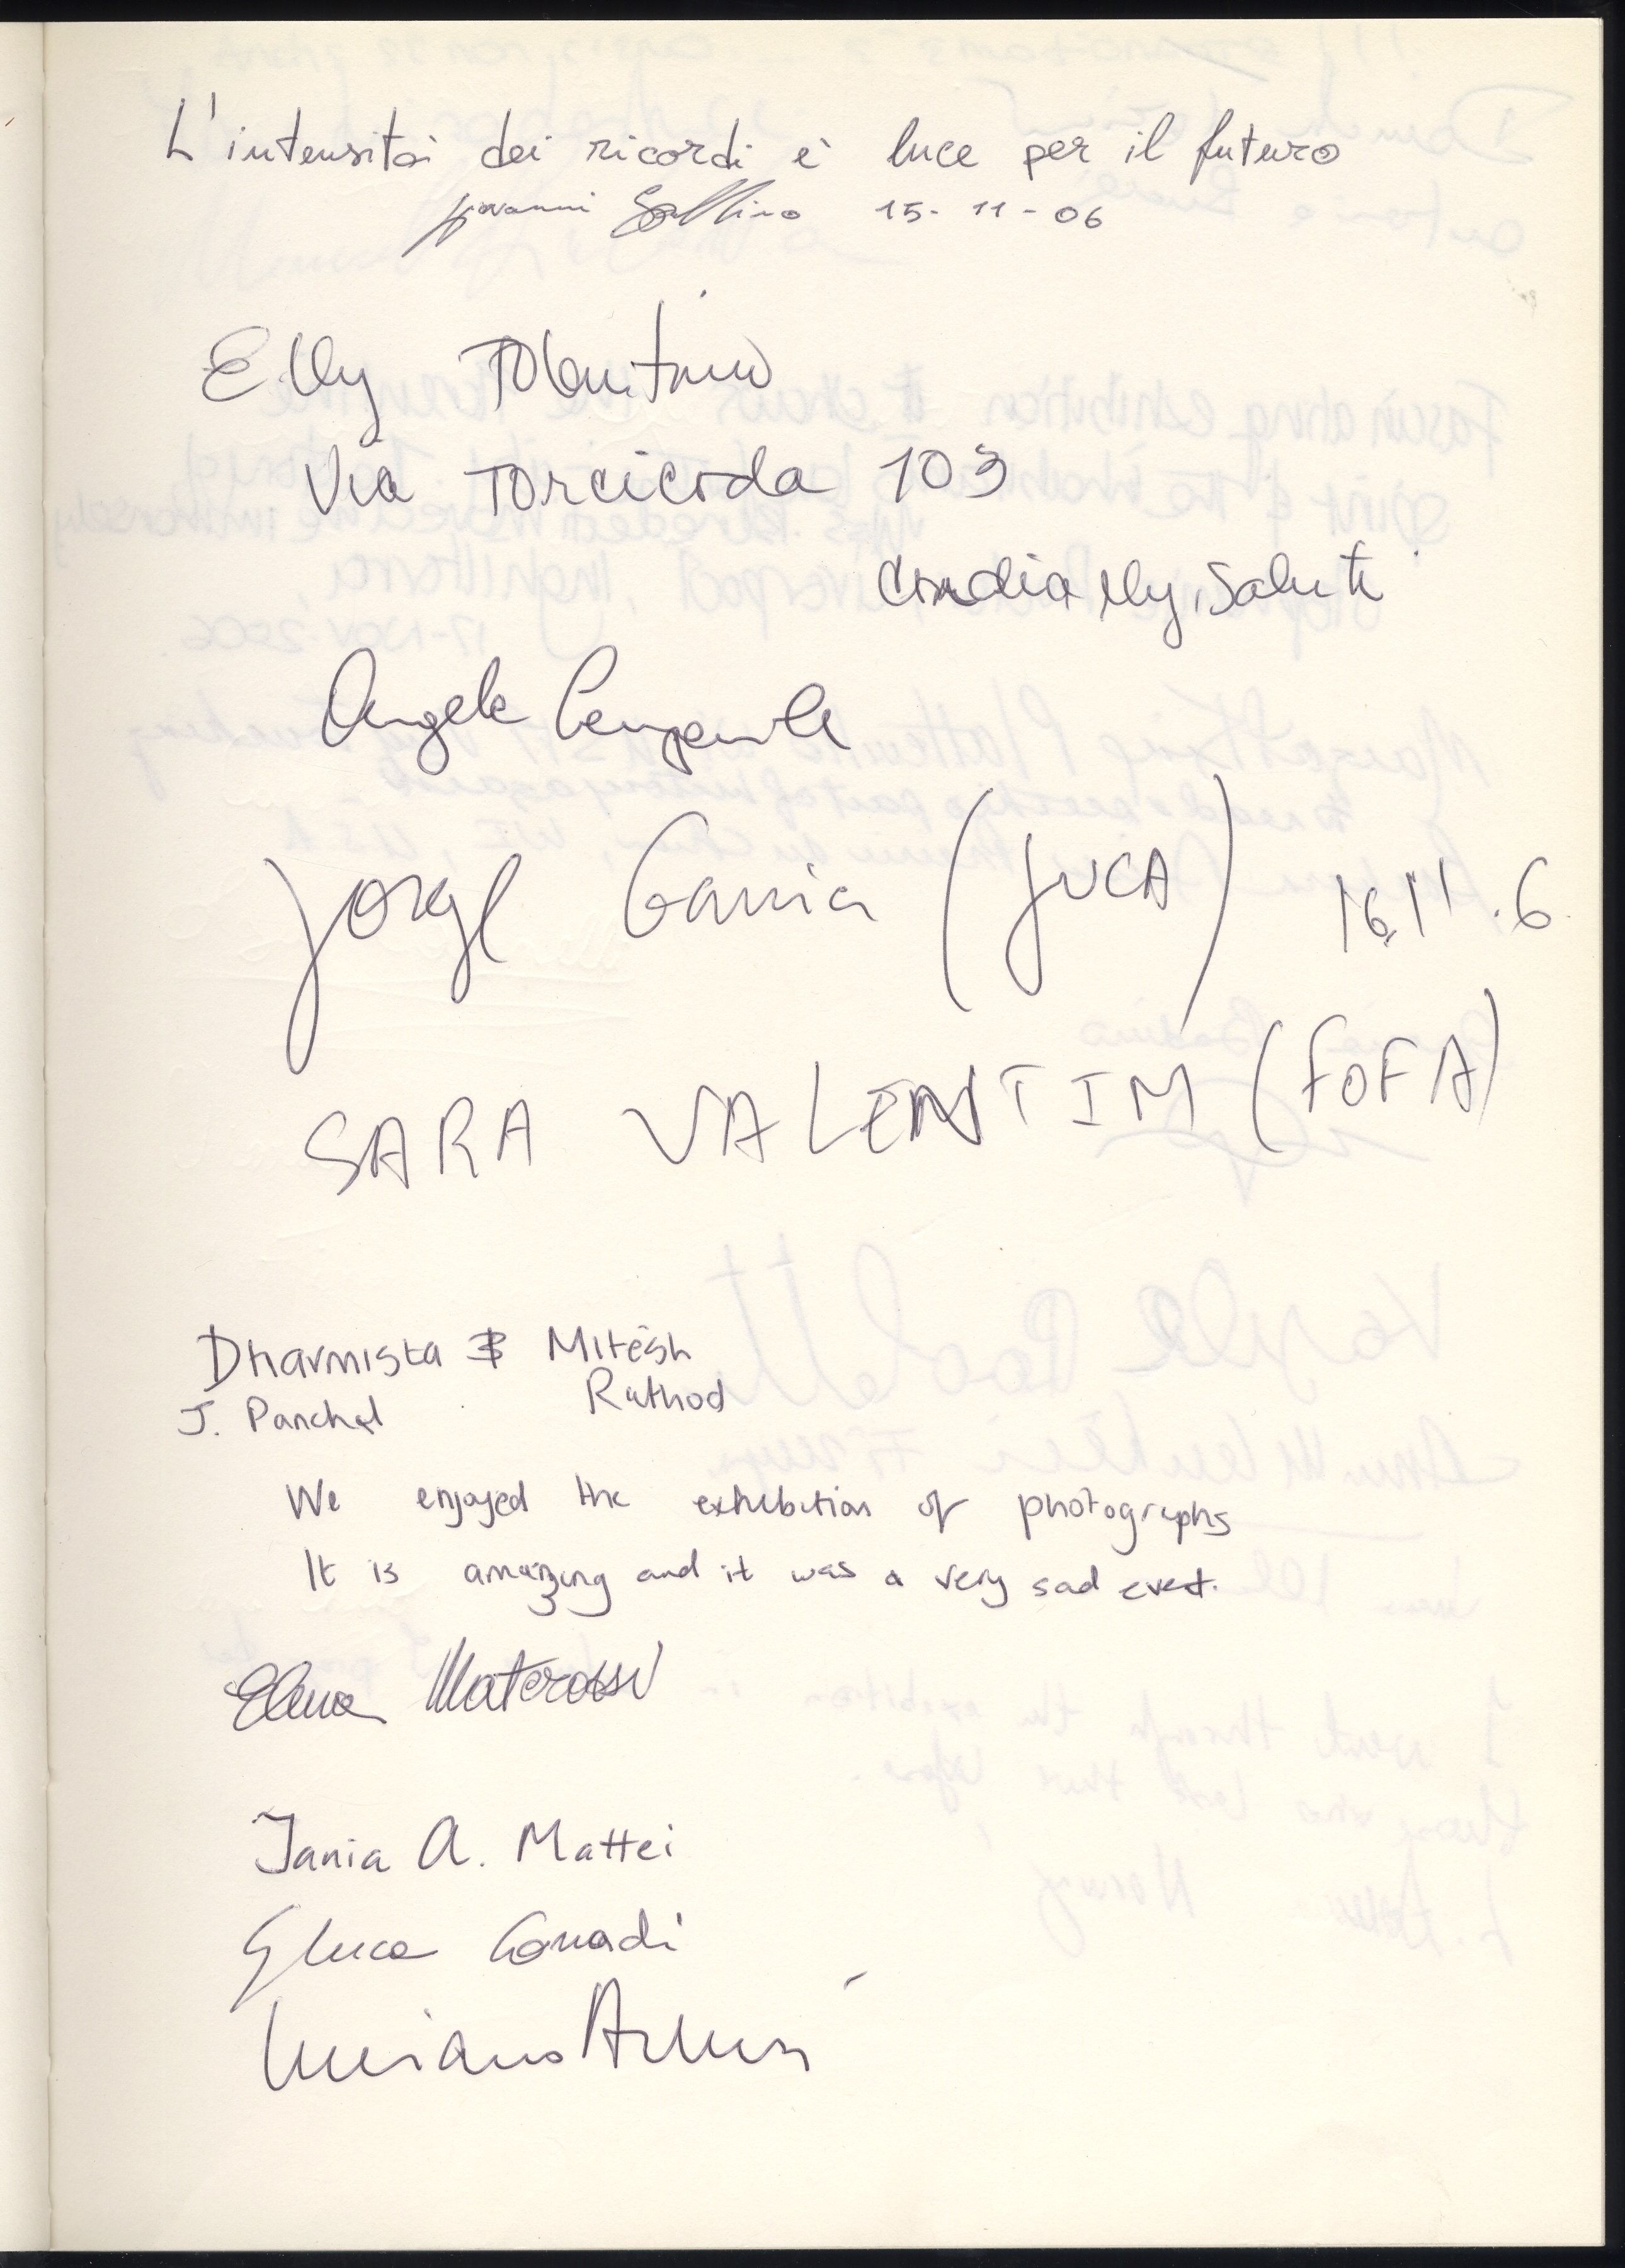 L'intensità dei ricordi è luce per il futuro
Giovanni 15-11-06
Elly
Via Torcicoda 103
Cordially, Saluti
Angela
Jorge Garcia (JUCA) 16.11.6
SARA VALENTIM (FOFA)
Dharmista & Mitesh
J. Panchal Rathod
We enjoyed the exhibition of photographs
It is amazing and it was a very sad event.
Elena Materassi
Tania A. Mattei
Gluca Corradi
Luciano